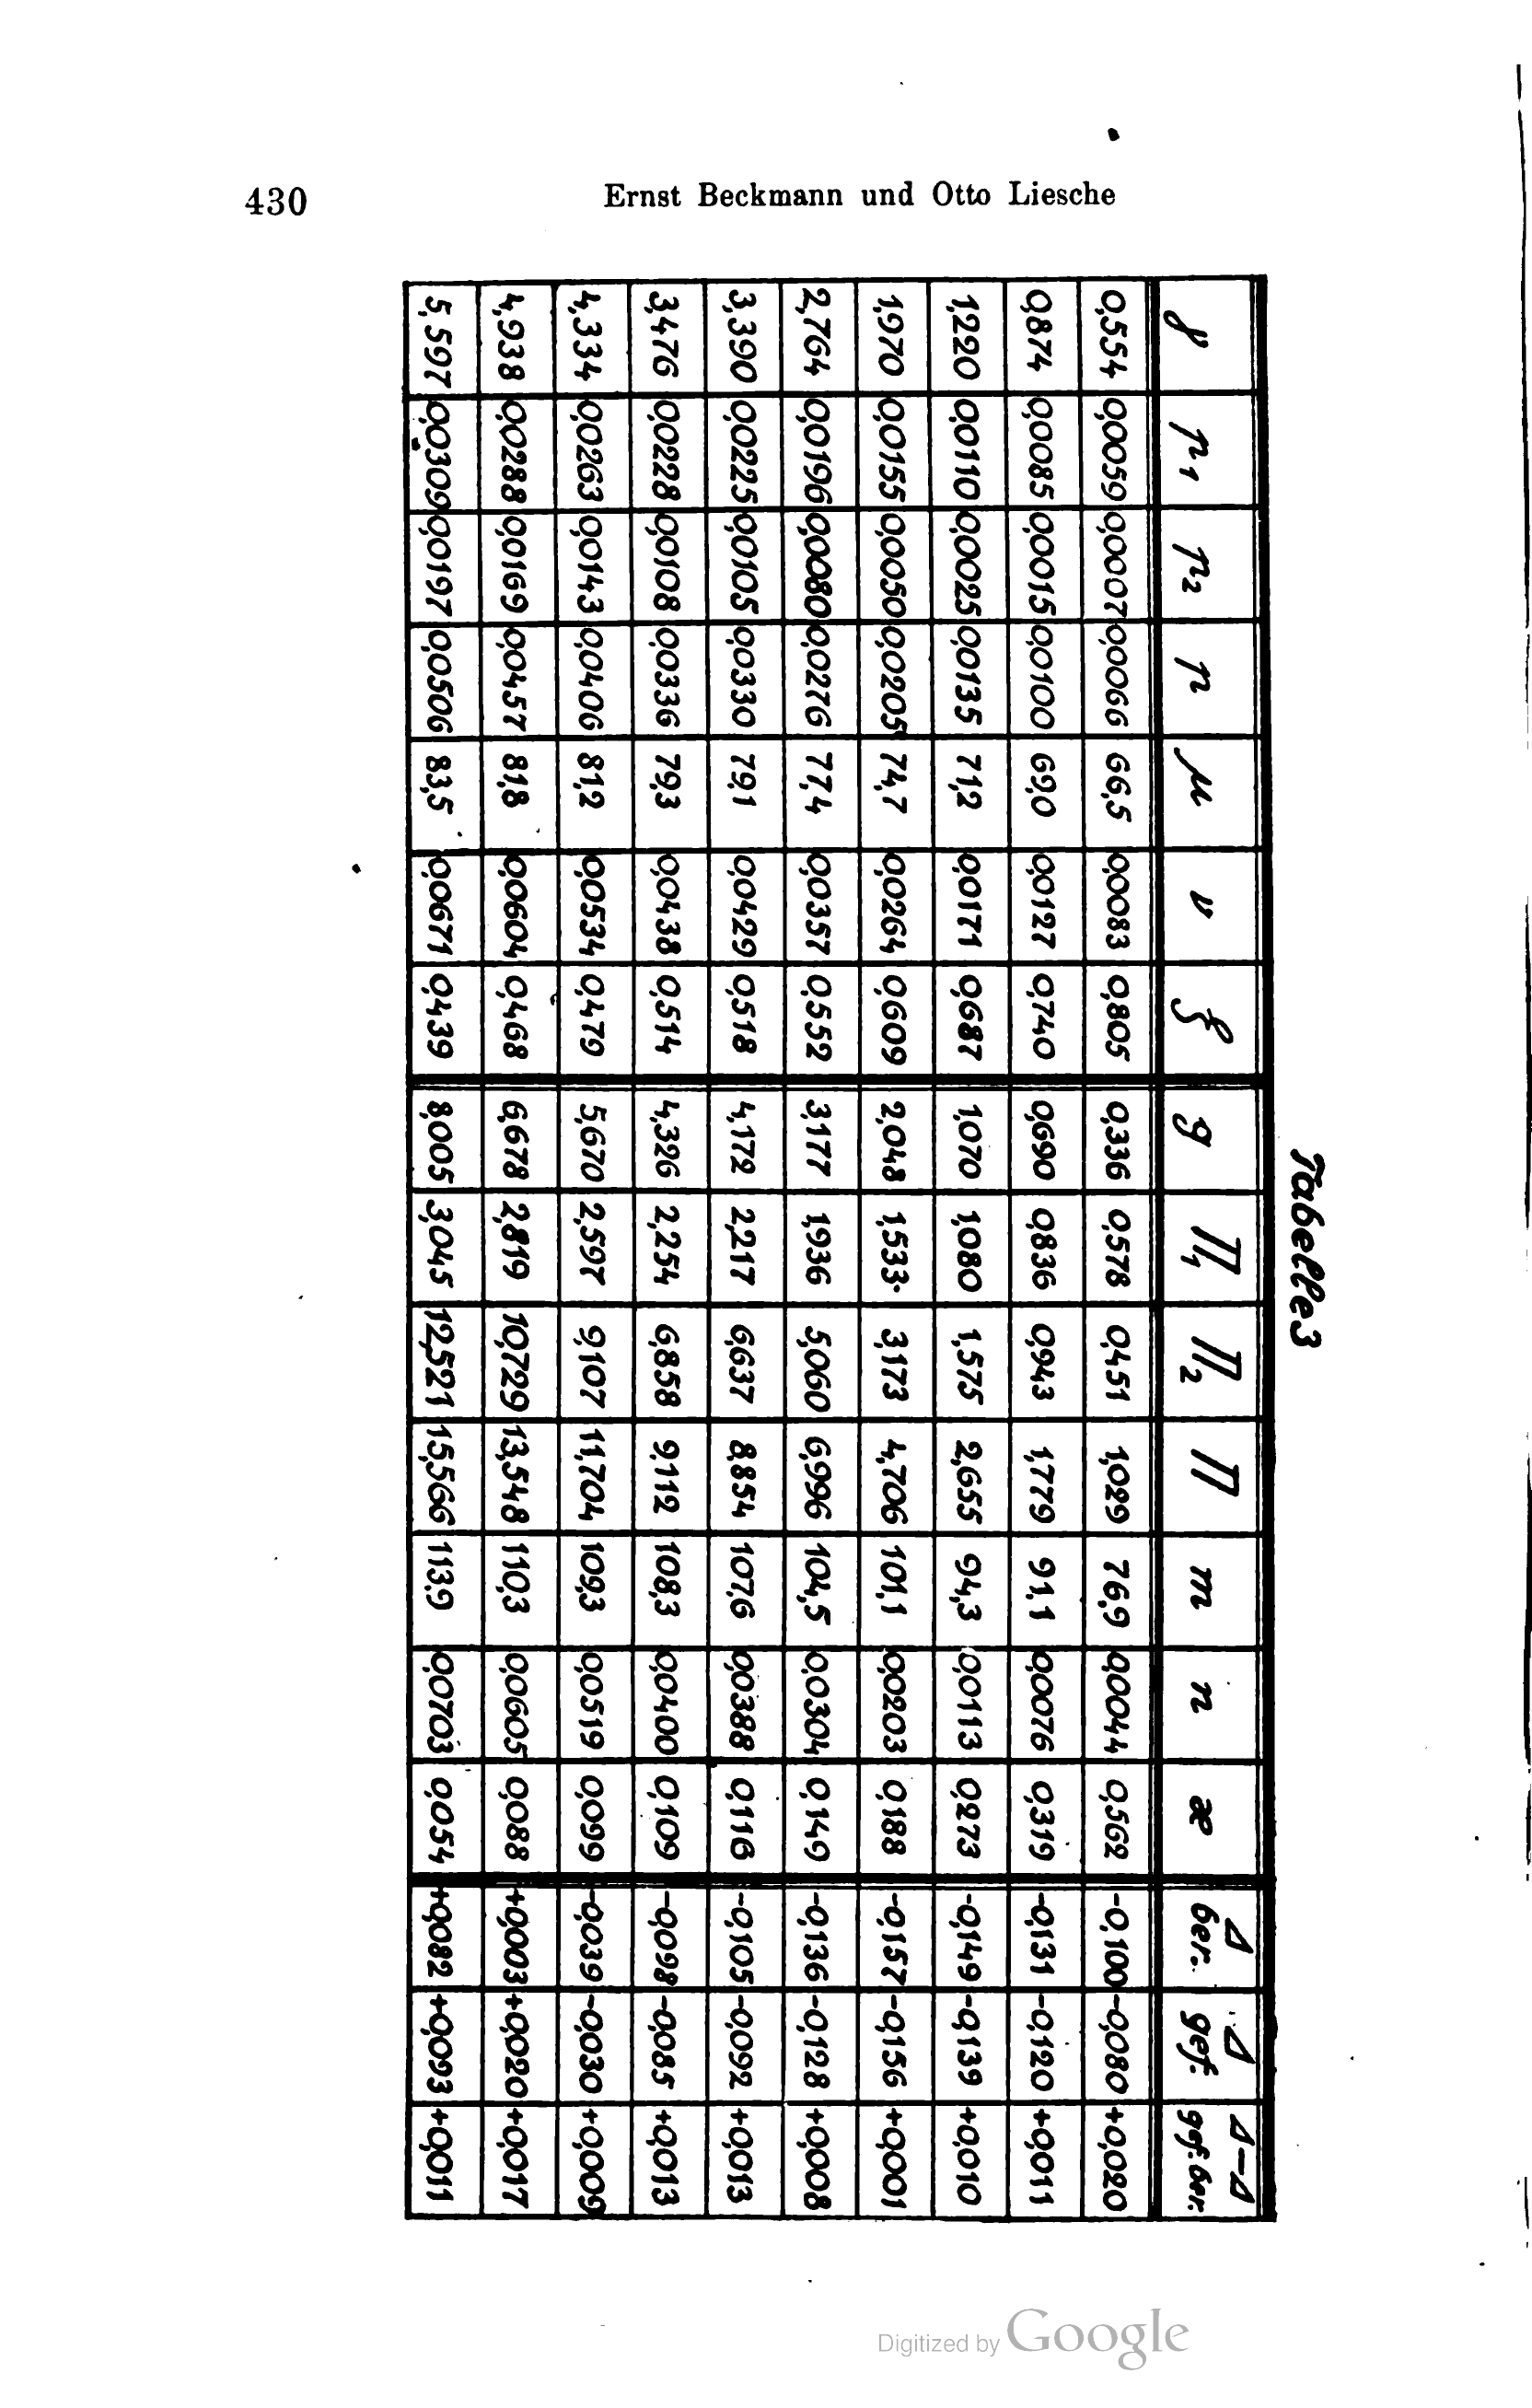 430
Ernst Beckmann und Otto Liesche
Tabelle 3
γ p₁ p₂ p μ ν ξ g Π₁ Π₂ Π m n æ Δ ber. Δ gef. Δ–Δ gef. ber.
0,554 0,00059 0,00007 0,00066 66,5 0,00083 0,805 0,336 0,578 0,451 1,029 76,9 0,00044 0,562 -0,100 -0,080 +0,020
0,874 0,00085 0,00015 0,00100 69,0 0,00127 0,740 0,690 0,836 0,943 1,779 91,1 0,00076 0,319 -0,131 -0,120 +0,011
1,220 0,00110 0,00025 0,00135 71,2 0,00171 0,687 1,070 1,080 1,575 2,655 94,3 0,00113 0,273 -0,149 -0,139 +0,010
1,970 0,00155 0,00050 0,00205 74,7 0,00264 0,609 2,048 1,533 3,173 4,706 101,1 0,00203 0,188 -0,157 -0,156 +0,001
2,764 0,00196 0,00080 0,00276 77,4 0,00357 0,552 3,177 1,936 5,060 6,996 104,5 0,00304 0,149 -0,136 -0,128 +0,008
3,390 0,00225 0,00105 0,00330 79,1 0,00429 0,518 4,172 2,217 6,637 8,854 107,6 0,00388 0,116 -0,105 -0,092 +0,013
3,476 0,00228 0,00108 0,00336 79,3 0,00438 0,514 4,326 2,254 6,858 9,112 108,3 0,00400 0,109 -0,098 -0,085 +0,013
4,334 0,00263 0,00143 0,00406 81,2 0,00534 0,479 5,670 2,597 9,107 11,704 109,3 0,00519 0,099 -0,039 -0,030 +0,009
4,938 0,00288 0,00169 0,00457 81,8 0,00604 0,468 6,678 2,819 10,729 13,548 110,3 0,00605 0,088 +0,003 +0,020 +0,017
5,597 0,00309 0,00197 0,00506 83,5 0,00671 0,439 8,005 3,045 12,521 15,566 113,9 0,00703 0,054 +0,082 +0,093 +0,011
Digitized by Google